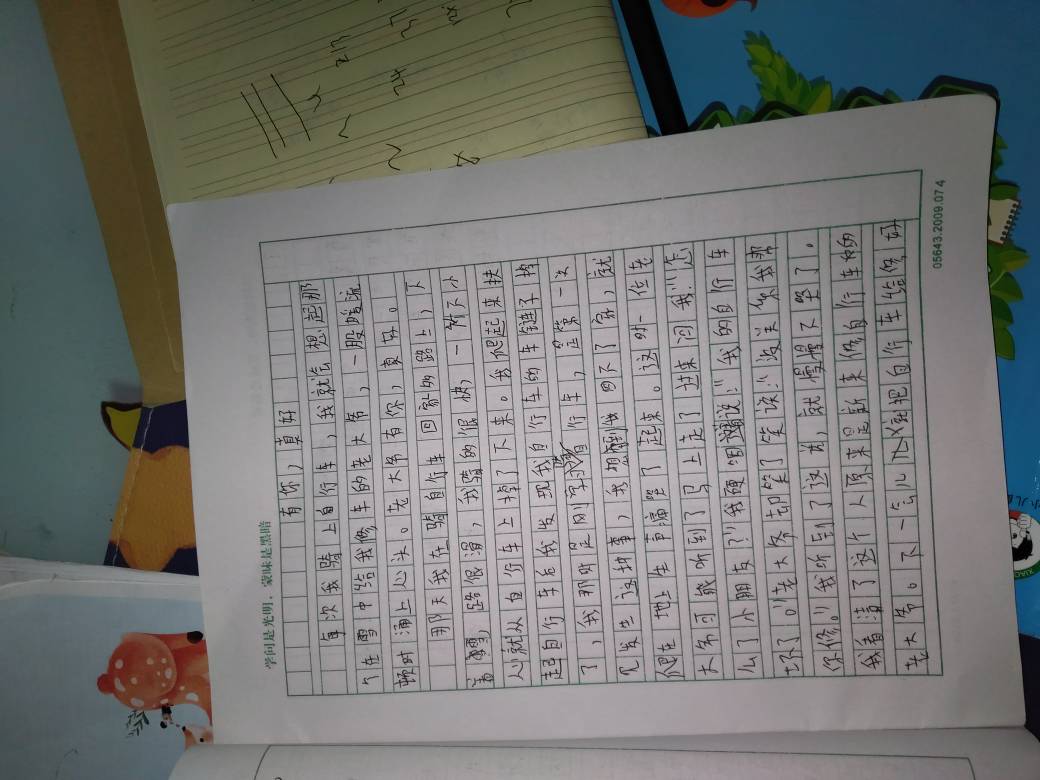 学问是光明，蒙昧是黑暗
有你，真好
每次我骑上自行车，我就会想起那
个在雪中给我修车的老大爷，一股暖流
顿时涌上心头。老大爷有你，真好。
那天我在骑自行车回家的路上，下
着雪，路很滑，我骑的很快，一个不小
心就从自行车上掉了下来。我爬起来扶
起自行车后我发现我自行车的车链子掉
了，我那时是刚学习自行车，是第一次
发生这种事，我想到做回不了家，就
蹲在地上失声痛哭了起来。这时一位老
大爷可能听到了马上走了过来问我:"怎
么了小朋友？"我哽咽着说:"我的自行车
坏了。"老大爷却笑了笑说:"没关系我帮
你修。"我听到了这话，就慢慢不哭了。
我看清了这个人原来是新来修自行车的
老大爷。不一会儿又把自行车给修好
05643.2009.07.4
XIAO
小儿